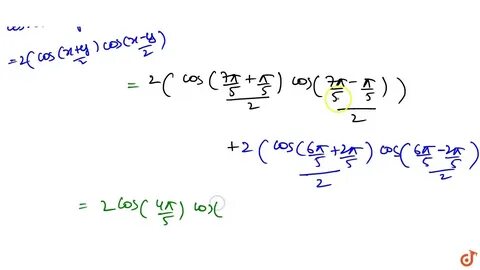 = 2 ( cos(x+y)/2 cos(x-y)/2 )
= 2 ( cos(7π/5 + π/5)/2 cos(7π/5 - π/5)/2 )
+ 2 ( cos(6π/5 + 2π/5)/2 cos(6π/5 - 2π/5)/2
= 2 cos(4π/5) cos(